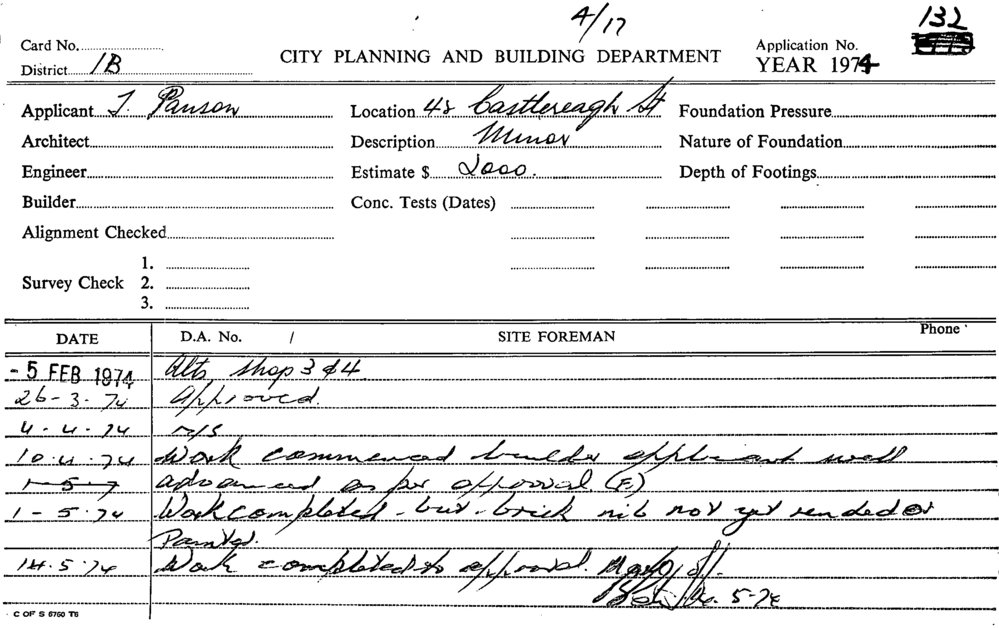 4/17
132
Card No.
CITY PLANNING AND BUILDING DEPARTMENT
Application No.
District 1B
YEAR 1974
Applicant J. Panson
Location 48 Castlereagh St
Foundation Pressure
Architect
Description Minor
Nature of Foundation
Engineer
Estimate $ 2000.
Depth of Footings
Builder
Conc. Tests (Dates)
Alignment Checked
1.
Survey Check 2.
3.
DATE D.A. No. / SITE FOREMAN Phone
- 5 FEB 1974 Alts shop 3 & 4.
26-3-74 Approved.
4-4-74 N/S
10.4.74 Work commenced builder applicant well
1-5-7 advanced as per approval (E)
1-5-74 Work completed - but - brick nib not yet rended or
Painted.
14.5.74 Work completed to approval.
5-74
C OF S 6750 T6